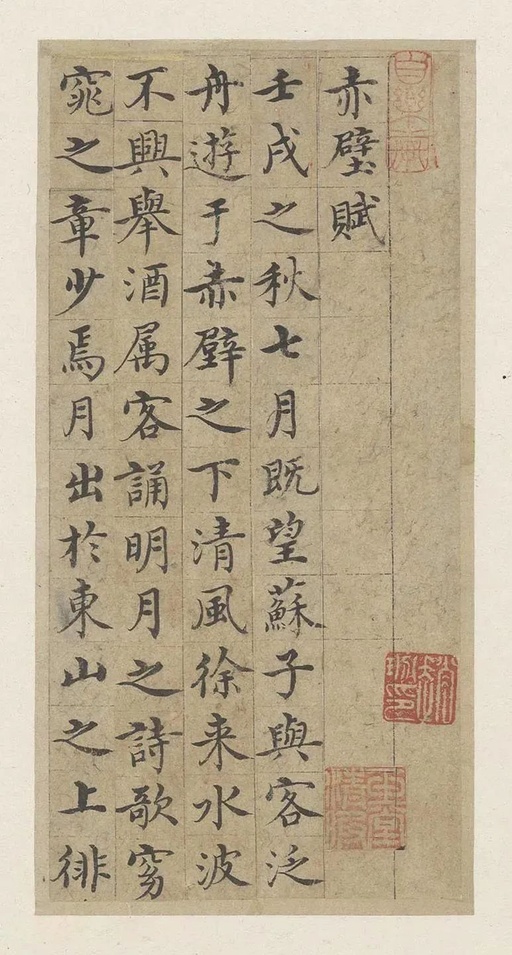 赤壁賦
壬戌之秋七月既望蘇子與客泛
舟遊于赤壁之下清風徐来水波
不興舉酒属客誦明月之詩歌窈
窕之章少焉月出於東山之上徘